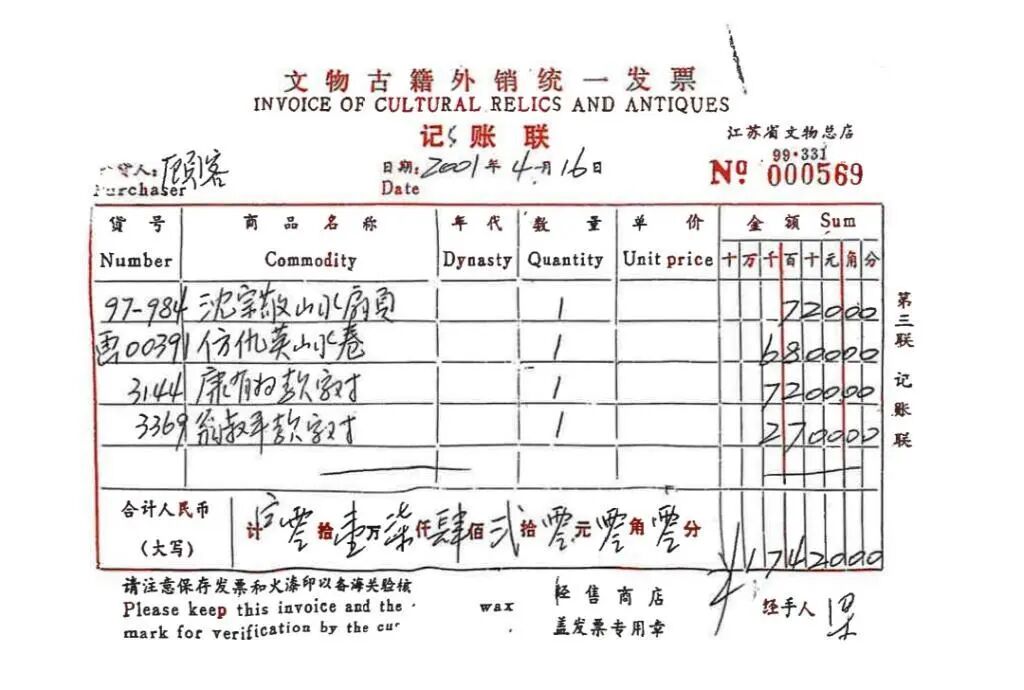 文物古籍外销统一发票
INVOICE OF CULTURAL RELICS AND ANTIQUES
记账联
江苏省文物总店
99·331
货人: 顾客
Purchaser
日期: 2001年4月16日
Date
Nº 000569
货号 商品名称 年代 数量 单价 金额 Sum
Number Commodity Dynasty Quantity Unit price 十万千百十元角分
97-984 沈宗敬山水扇页 1 72000
00391 仿仇英山水卷 1 680000
3144 康有为款字对 1 720000
3369 翁叔平款字对 1 270000
第三联 记账联
合计人民币
(大写)
计 零拾壹万柒仟肆佰贰拾零元零角零分
¥1742000
请注意保存发票和火漆印以备海关验核
Please keep this invoice and the wax
mark for verification by the cu
经售商店
盖发票专用章
经手人